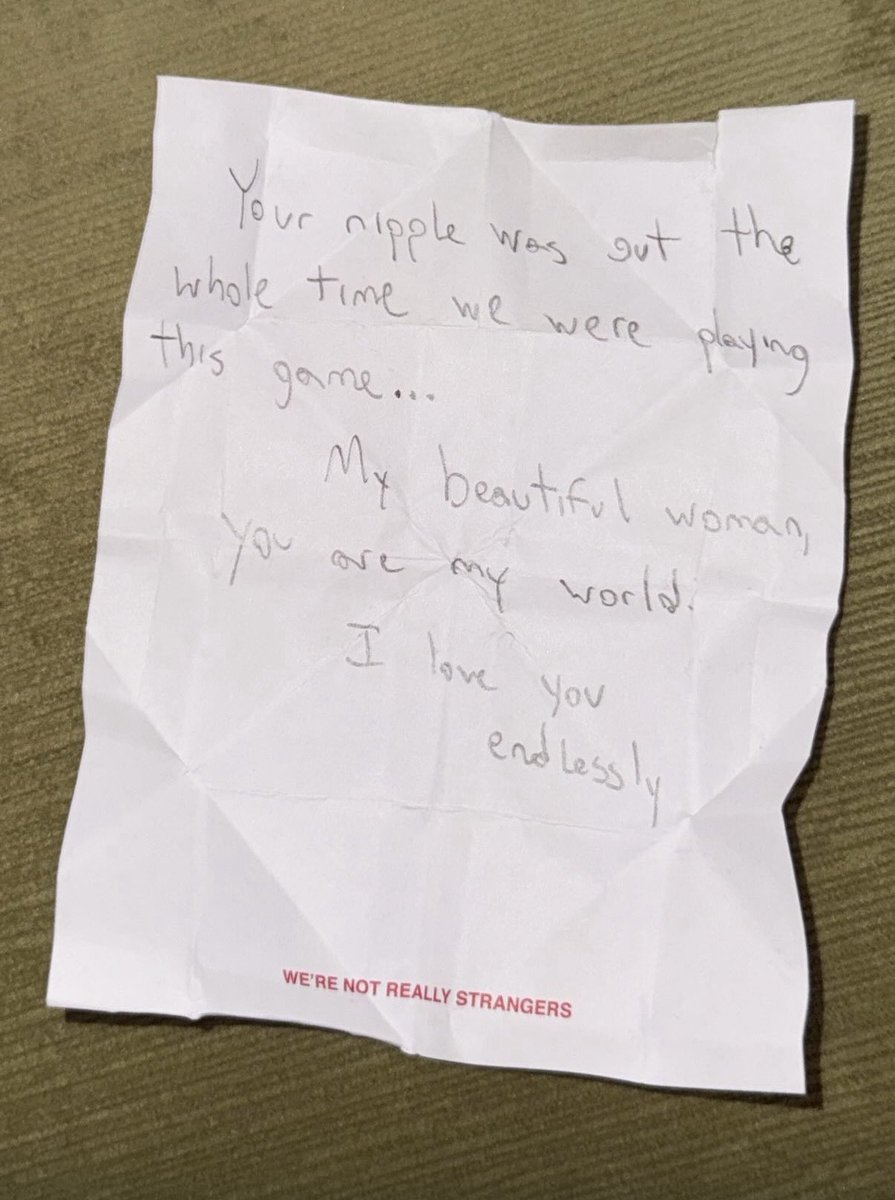 Your nipple was out the
whole time we were playing
this game...
My beautiful woman,
you are my world.
I love you
endlessly
WE'RE NOT REALLY STRANGERS